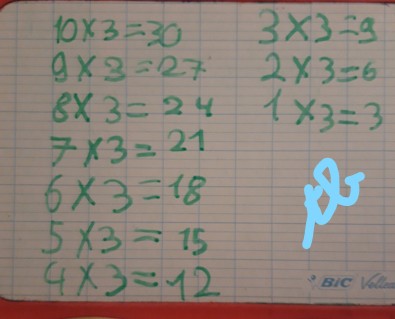 10×3=30
9×3=27
8×3=24
7×3=21
6×3=18
5×3=15
4×3=12
3×3=9
2×3=6
1×3=3
BIC Velleda